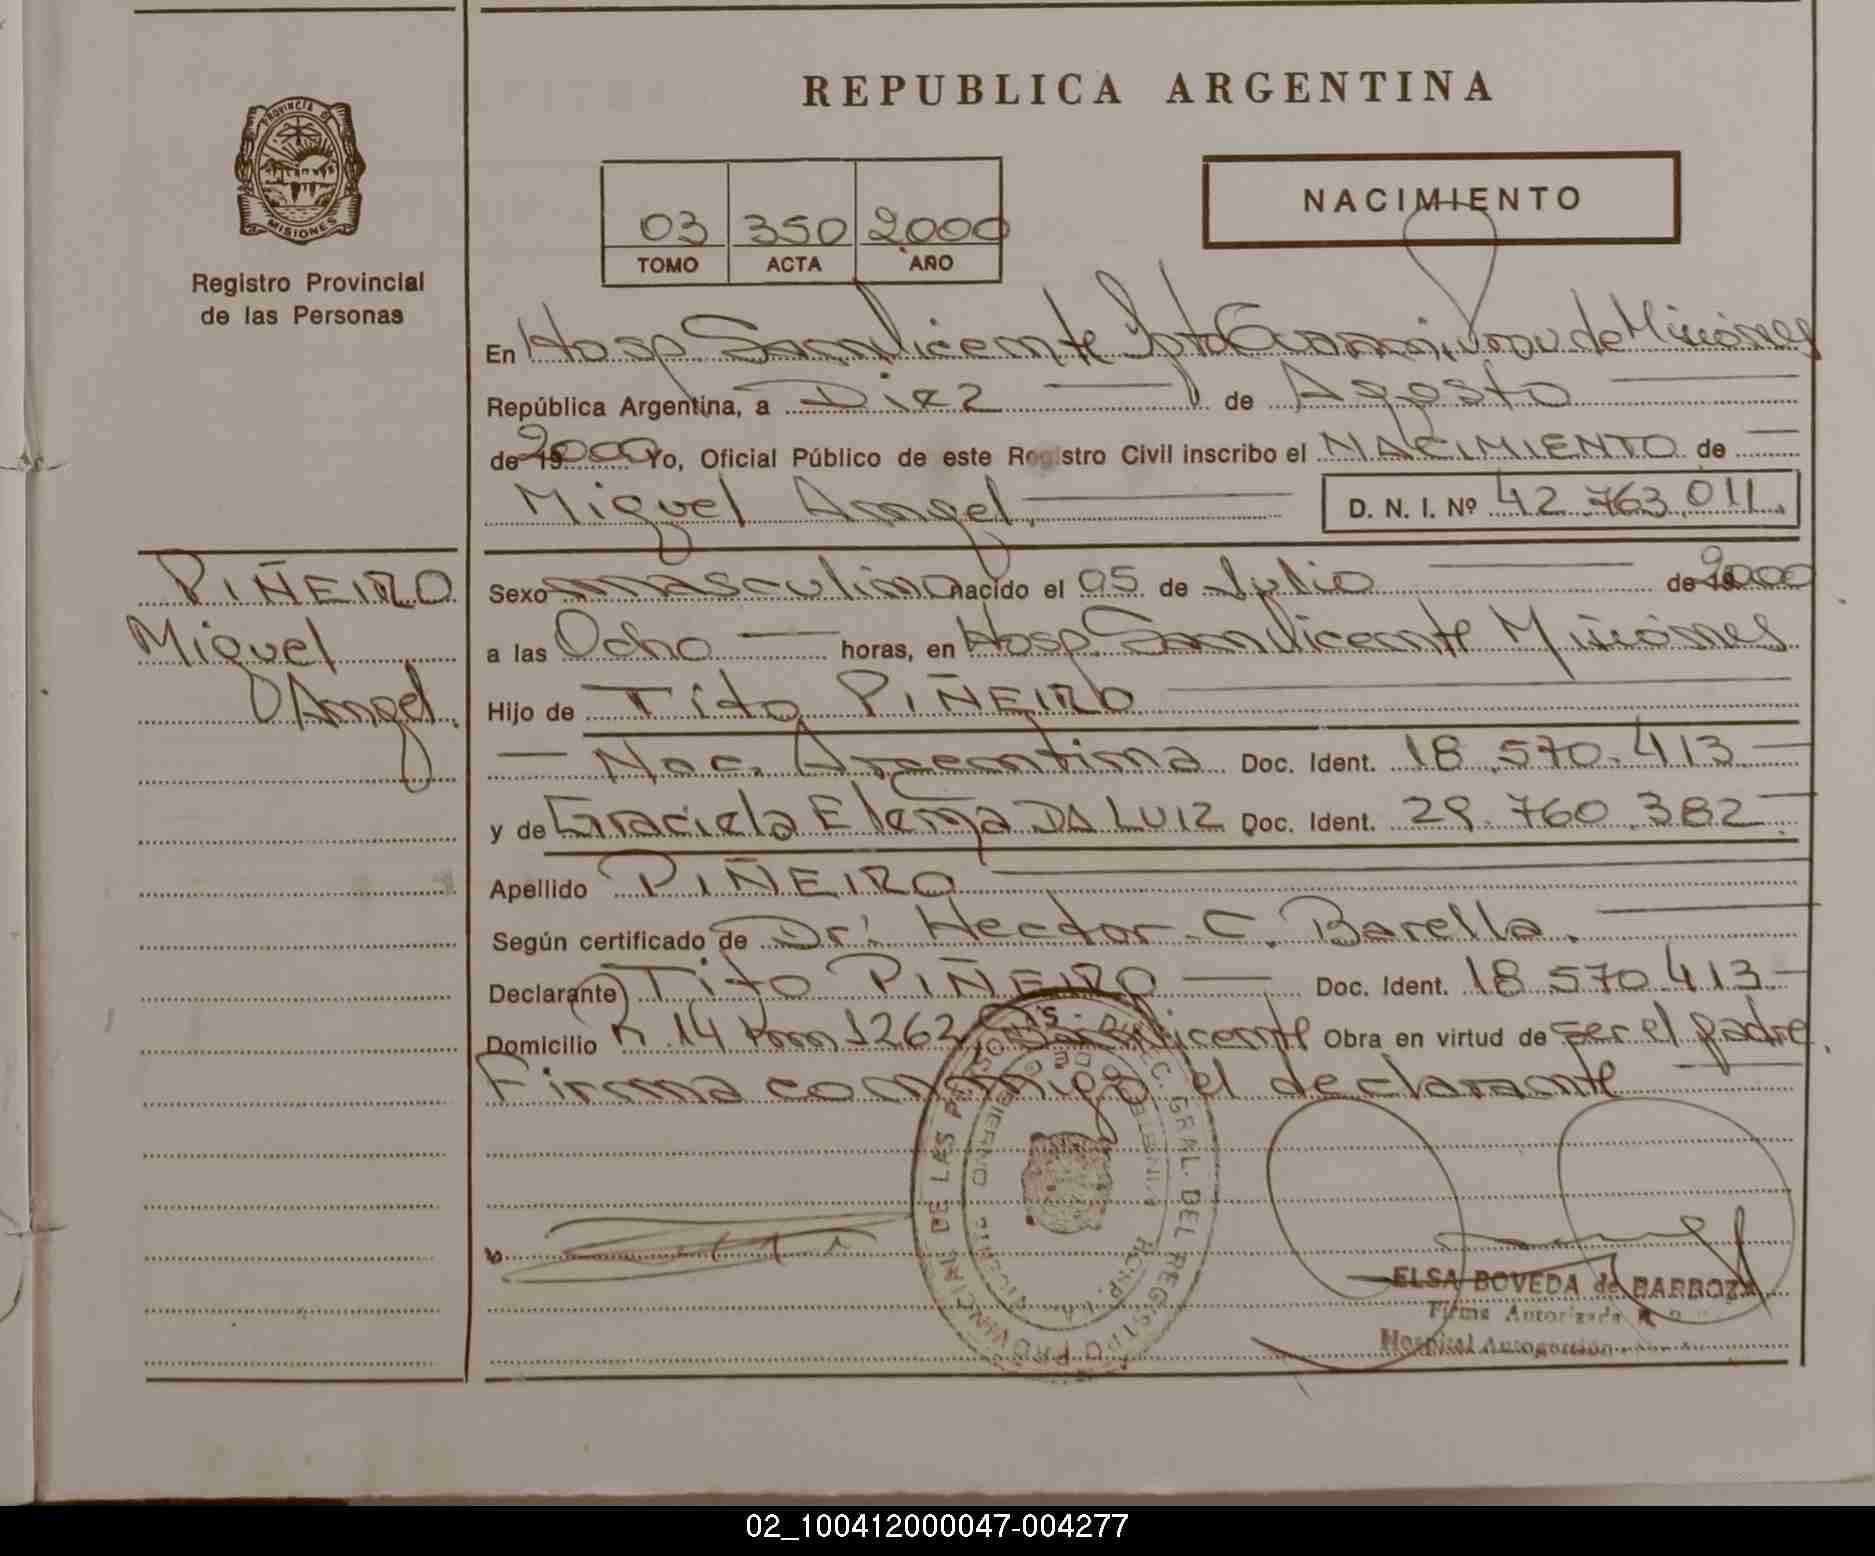 REPUBLICA ARGENTINA
PROVINCIA DE
MISIONES
Registro Provincial
de las Personas
NACIMIENTO
03 350 2000
TOMO ACTA AÑO
En Hosp San Vicente Dpto Guarani, Prov de Misiones
República Argentina, a Diez de Agosto
de 19 2000 Yo, Oficial Público de este Registro Civil inscribo el NACIMIENTO de
Miguel Angel D. N. I. Nº 42.763.011.
PIÑEIRO
Miguel
Angel.
Sexo masculino nacido el 05 de Julio de 19 2000
a las Ocho horas, en Hosp. San Vicente Misiones
Hijo de Tito PIÑEIRO
Nac. Argentina Doc. Ident. 18.570.413
y de Graciela Elena DA LUIZ Doc. Ident. 29.760.382
Apellido PIÑEIRO
Según certificado de Dr. Hector C. Barella.
Declarante Tito PIÑEIRO Doc. Ident. 18.570.413
Domicilio R. 14 Km 1262 San Vicente Obra en virtud de ser el padre.
Firma conmigo el declarante
DIREC. GRAL. DEL REGISTRO PROVINCIAL DE LAS PERSONAS
ELSA BOVEDA de BARBOZA
Firma Autorizada
Hospital Autogestión
02_100412000047-004277